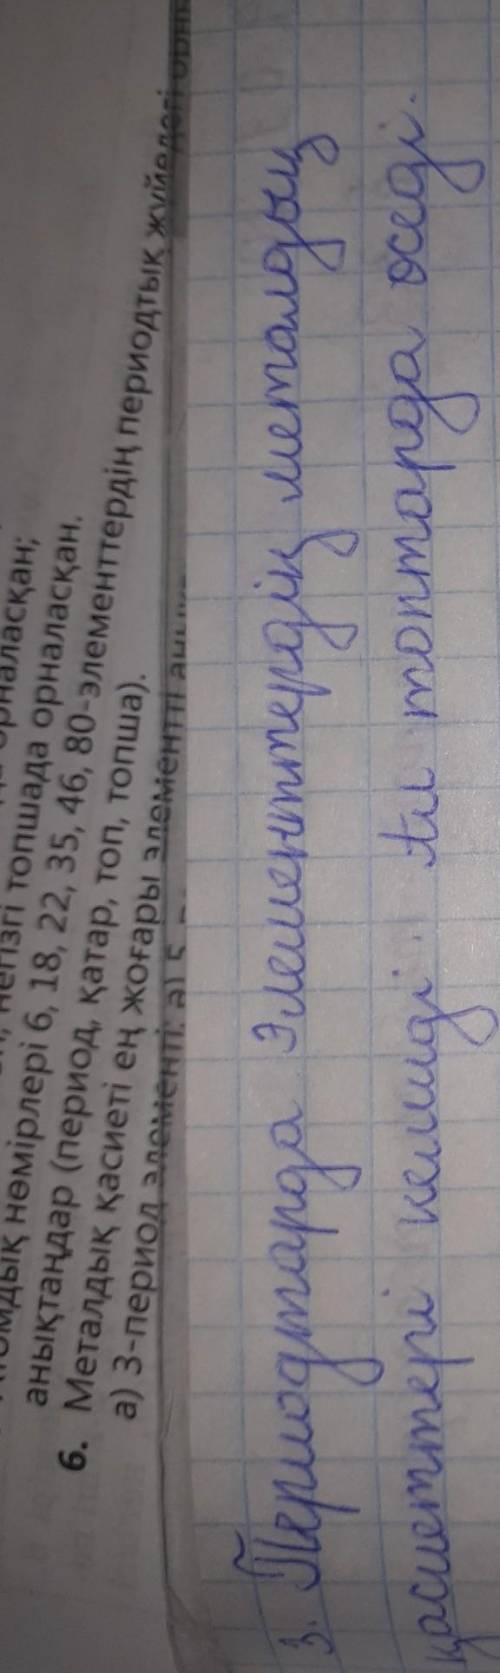 орналасқан;
негізгі топшада орналасқан.
нөмірлері 6, 18, 22, 35, 46, 80-элементтердің периодтық жүйедегі
анықтаңдар (период, қатар, топ, топша).
6. Металдық қасиеті ең жоғары элементті
а) 3-период элементі. ә) 5
3. Периодтарда элементтердің металдық
қасиеттері кемиді. Ал топтарда өседі.